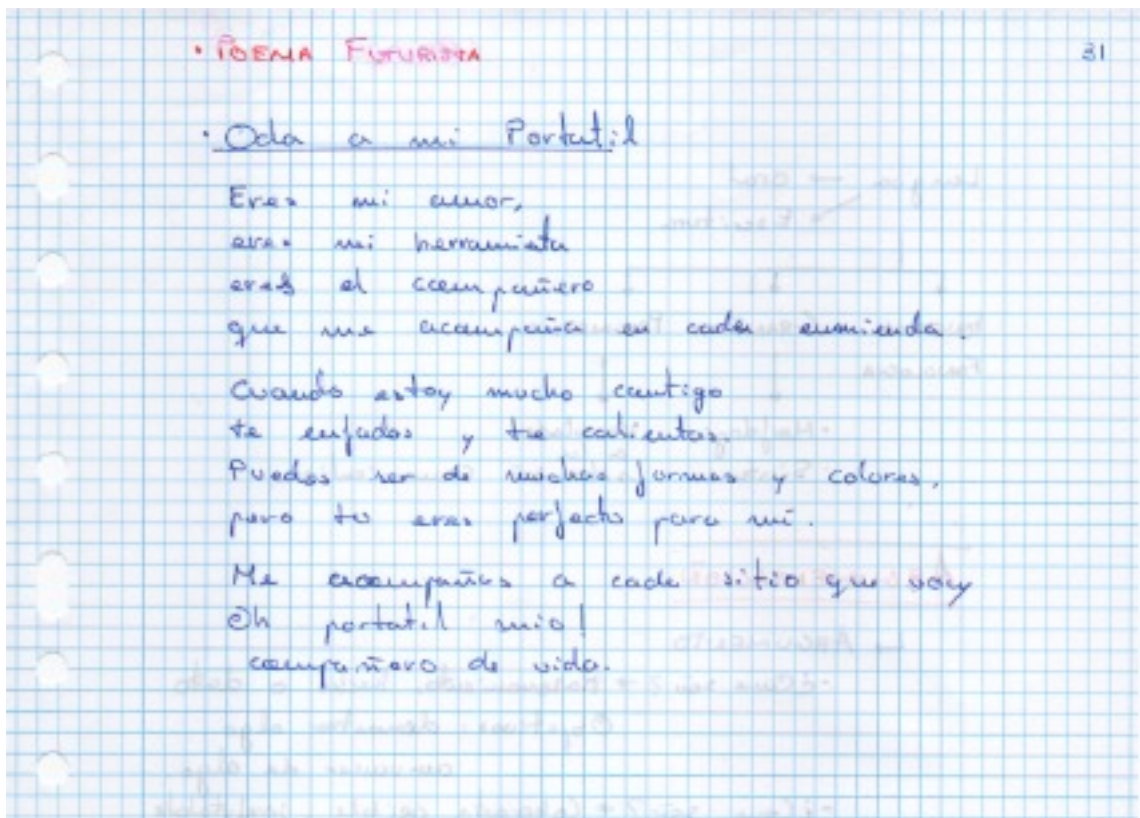 · POEMA FUTURISTA
31
· Oda a mi Portatil
Eres mi amor,
eres mi herramienta
eres el compañero
que me acompaña en cada enmienda.
Cuando estoy mucho contigo
te enfadas y te calientas.
Puedes ser de muchas formas y colores,
pero tu eres perfecto para mí.
Me acompañas a cada sitio que voy
Oh portatil mio!
compañero de vida.